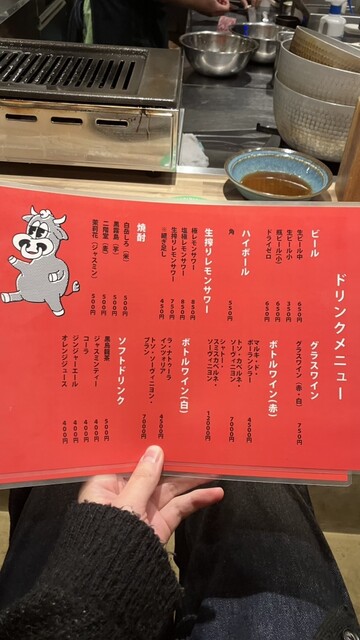 ドリンクメニュー
ビール
生ビール中 650
生ビール小 350
瓶ビール(小) 650
ドライゼロ 450
ハイボール
角 550円
生搾りレモンサワー
極レモンサワー 850円
塩極レモンサワー 850円
生搾りレモンサワー 750円
※継ぎ足し 450円
焼酎
白岳しろ(米) 500円
黒霧島(芋) 500円
二階堂(麦) 500円
茉莉花(ジャスミン) 500円
グラスワイン
グラスワイン(赤・白) 750円
ボトルワイン(赤)
マルキ・ド・
ボーランシラー 4500円
トソ・カベルネ・
ソーヴィニヨン 7000円
シャトー・
スミスカベルネ・
ソーヴィニヨン 12000円
ボトルワイン(白)
ラ・ナトゥーラ
インツォリア 4500円
トソ・ソーヴィニヨン・
ブラン 7000円
ソフトドリンク
黒烏龍茶 500円
ジャスミンティー 400円
コーラ 400円
ジンジャーエール 400円
オレンジジュース 400円